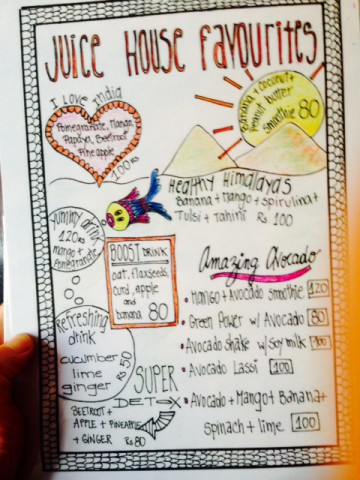 Juice House favourites
I Love India
Pomegranate, Manan,
Papaya, Beetroot
Pineapple
100 Rs
Banana + Coconut +
Peanut butter
Smoothie 80
Healthy Himalayas
Banana + Mango + spirulina +
Tulsi + Tahini Rs 100
Yummy drink
120 Rs
mango +
Pomegranate
BOOST DRINK
oat, flaxseeds,
curd, apple
and
banana 80
Amazing Avocado
• Mango + Avocado smoothie 120
• Green Power w/ Avocado 80
• Avocado shake w/ Soy milk 100
• Avocado Lassi 100
• Avocado + Mango + Banana +
spinach + lime 100
Refreshing
drink
cucumber
lime
ginger Rs 50
SUPER
DETOX
BEETROOT +
APPLE + PINEAPPLE
+ GINGER Rs 80